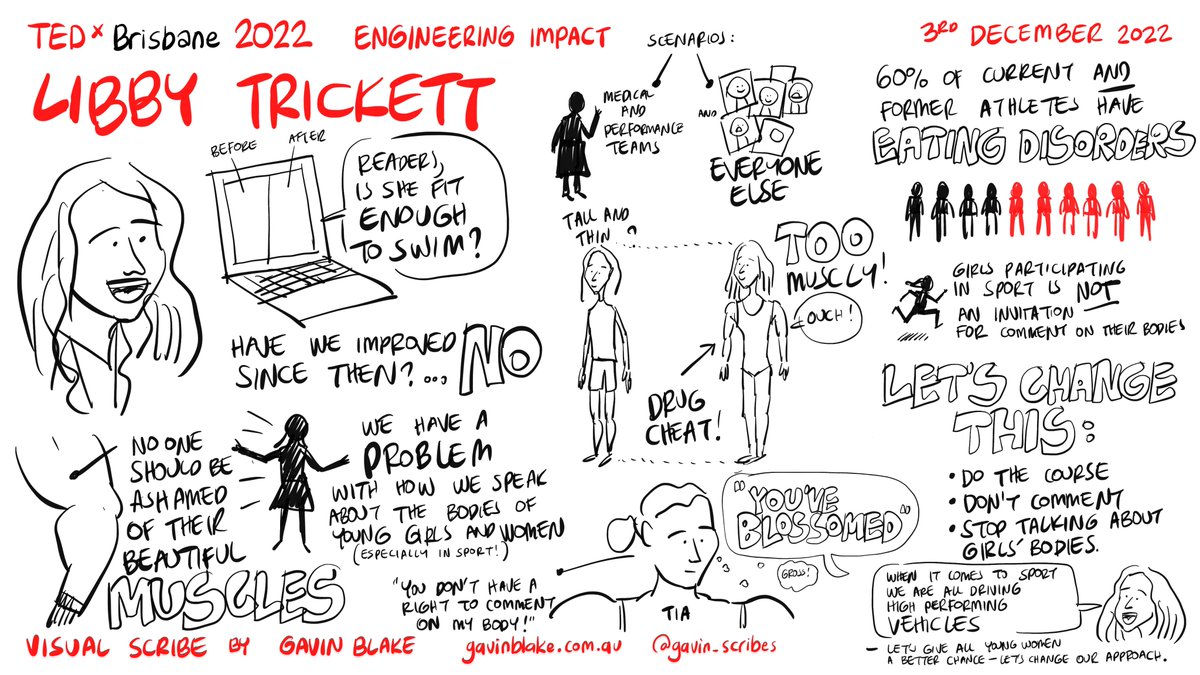 TEDx Brisbane 2022 ENGINEERING IMPACT
3RD DECEMBER 2022
LIBBY TRICKETT
BEFORE
AFTER
READERS,
IS SHE FIT
ENOUGH
TO SWIM?
HAVE WE IMPROVED
SINCE THEN?... NO
NO ONE
SHOULD BE
ASHAMED
OF THEIR
BEAUTIFUL
MUSCLES
WE HAVE A
PROBLEM
WITH HOW WE SPEAK
ABOUT THE BODIES OF
YOUNG GIRLS AND WOMEN
(ESPECIALLY IN SPORT!)
"YOU DON'T HAVE A
RIGHT TO COMMENT
ON MY BODY!"
SCENARIOS:
MEDICAL
AND
PERFORMANCE
TEAMS
AND
EVERYONE
ELSE
TALL AND
THIN?
TOO
MUSCLY!
OUCH!
DRUG
CHEAT!
"YOU'VE
BLOSSOMED"
GROSS!
TIA
60% OF CURRENT AND
FORMER ATHLETES HAVE
EATING DISORDERS
GIRLS PARTICIPATING
IN SPORT IS NOT
AN INVITATION
FOR COMMENT ON THEIR BODIES
LET'S CHANGE
THIS:
• DO THE COURSE
• DON'T COMMENT
• STOP TALKING ABOUT
GIRLS' BODIES.
WHEN IT COMES TO SPORT
WE ARE ALL DRIVING
HIGH PERFORMING
VEHICLES
— LET'S GIVE ALL YOUNG WOMEN
A BETTER CHANCE – LET'S CHANGE OUR APPROACH.
VISUAL SCRIBE BY GAVIN BLAKE gavinblake.com.au @gavin_scribes